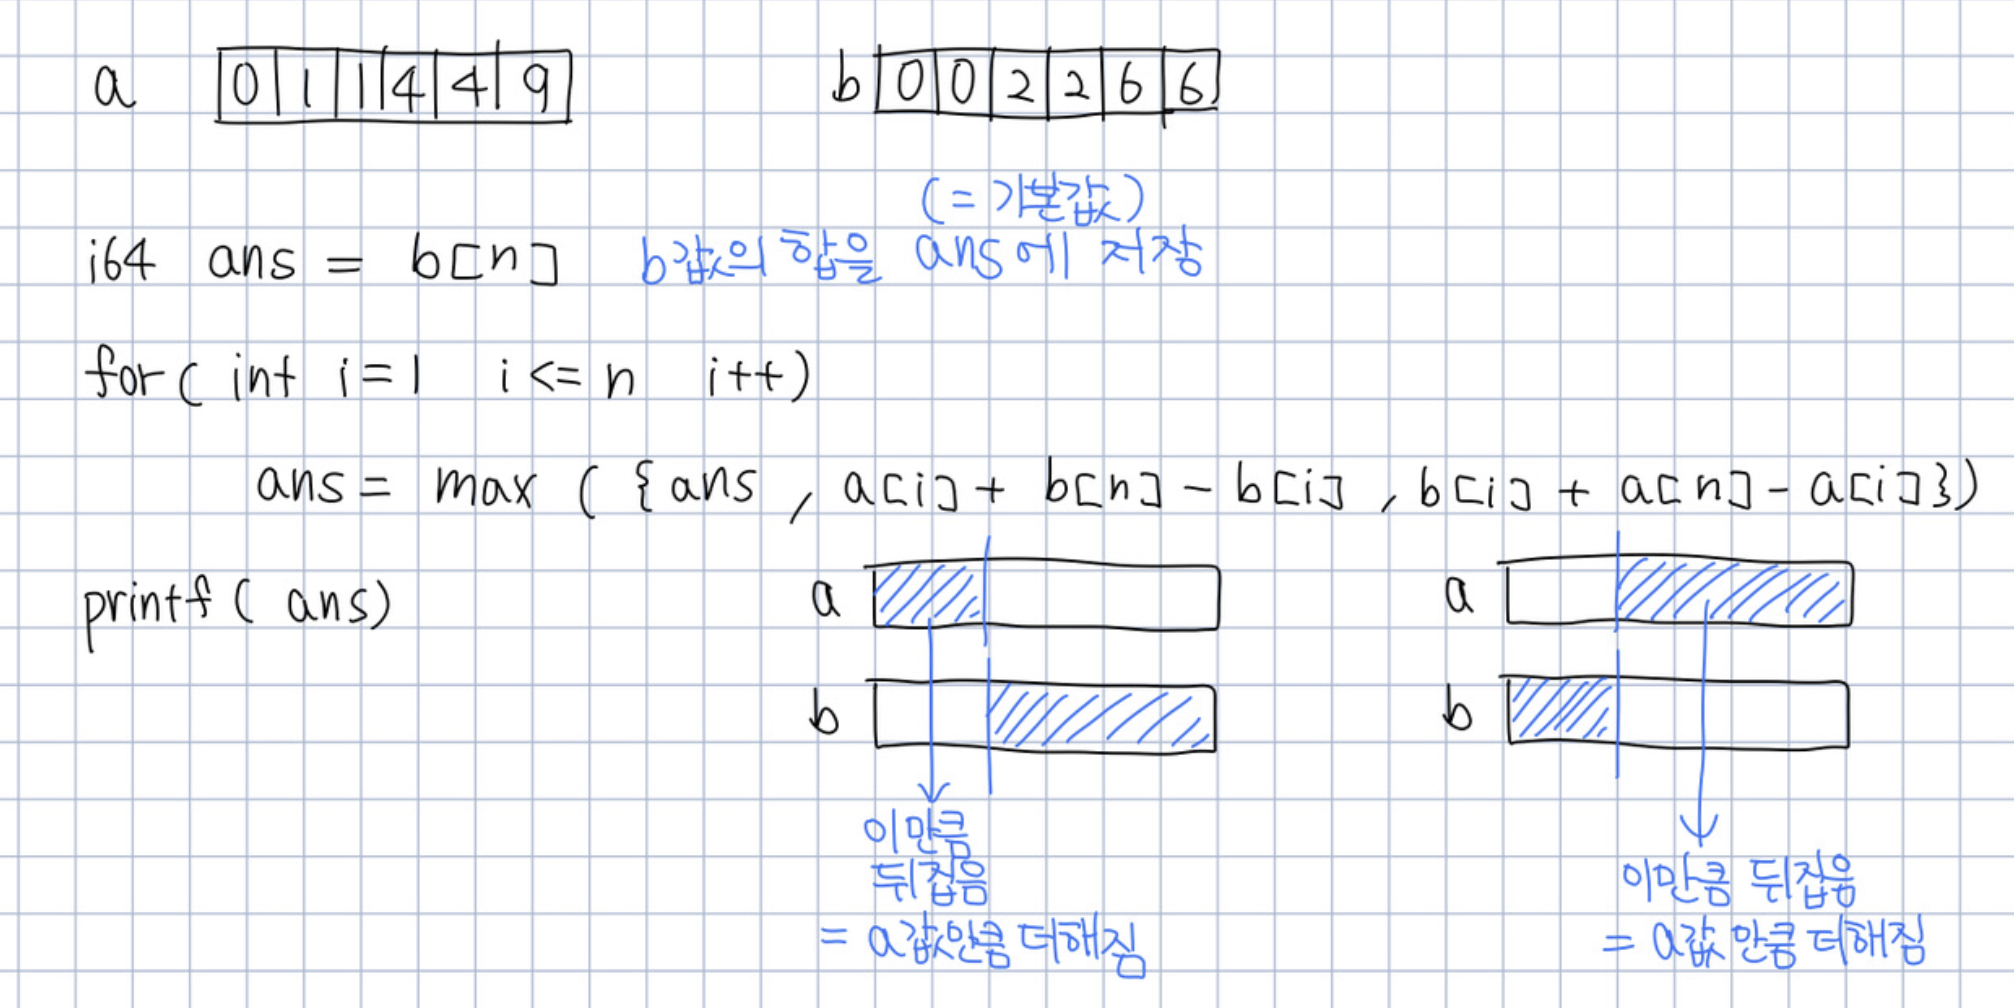 a 0 1 1 4 4 9 b 0 0 2 2 6 6
(= 기본값)
i64 ans = b[n] b값의 합을 ans에 저장
for( int i=1 i<=n i++)
ans = max ( {ans , a[i]+ b[n]-b[i] , b[i] + a[n]-a[i]})
printf ( ans) a a
b b
이만큼
뒤집음
= a값만큼 더해짐
이만큼 뒤집음
= a값 만큼 더해짐